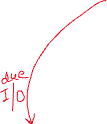 due
I/O